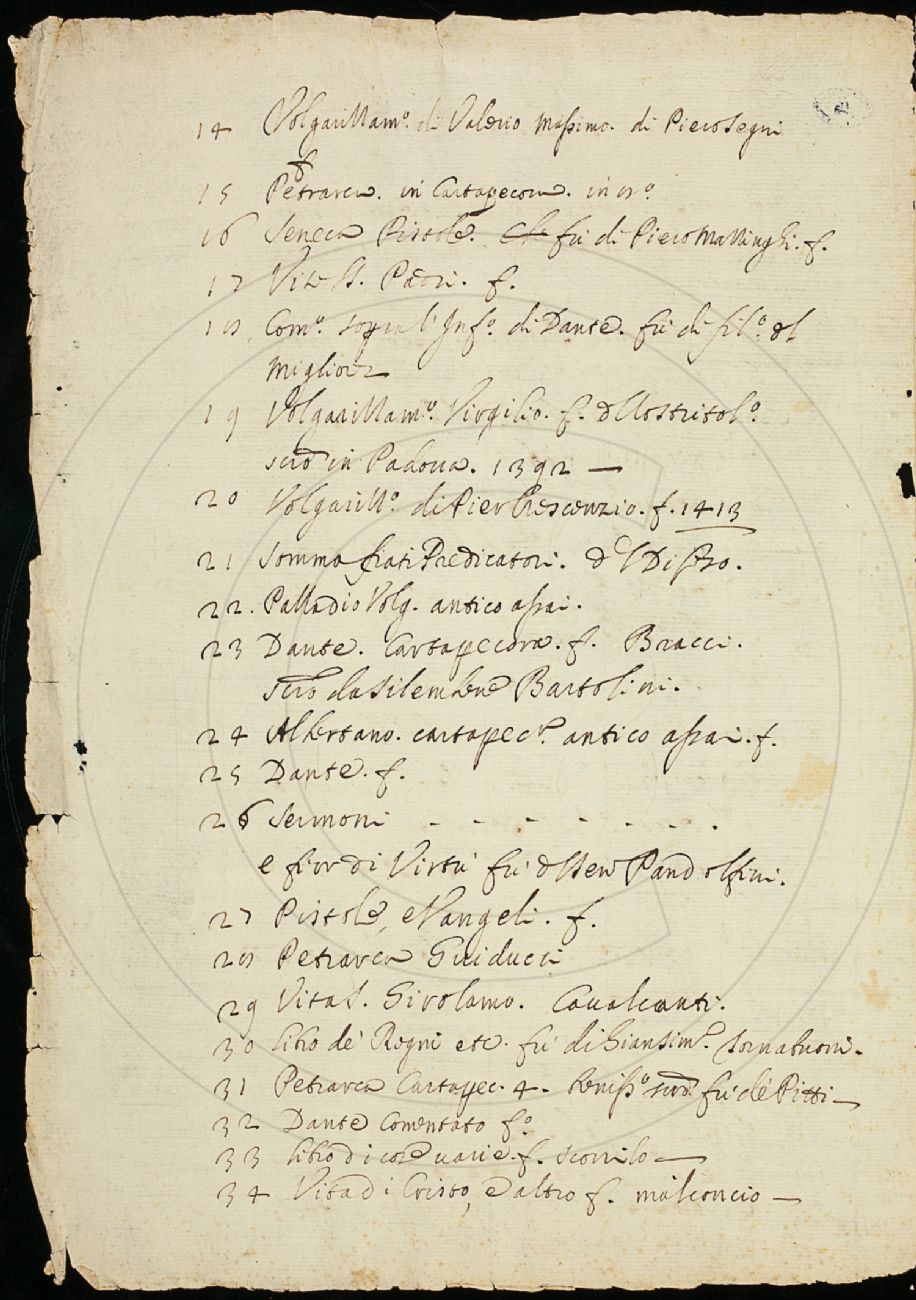 14 Volgarizzam.º di Valerio Massimo. di Piero Segni
f
15 Petrarca. in Cartapecora. in 8.º
16 Seneca Pistole. che fu di Piero Mazzinghi. f.
17 Vite SS. Padri. f.
18 Com.º sopra l'Inf.º di Dante. fu di Fil.º del
Migliore
19 Volgarizzam.º Virgilio. f. dello
scrō in Padoua. 1392 —
20 Volgarizz.º di Pier Crescenzio. f. 1413
21 Somma frati Predicatori. del
22. Palladio Volg. antico assai.
23 Dante. Cartapecora. f. Bracci.
scrō da Bartolini.
24 Albertano. cartapec.ª antico assai. f.
25 Dante. f.
26 Sermoni - - - - - - .
e fior di Virtù fu Pandolfini.
27 Pistole, e Vangeli. f.
28 Petrarca Guiducci
29 Vita S. Girolamo. Caualcanti.
30 libro de' Regni etc. fu di Giansim.e Tornabuoni.
31 Petrarca Cartapec. 4. beniss.º scrō fu de Pitti —
32 Dante Comentato f.º
33 libro di cose uarie. f. —
34 Vita di Cristo, e altro f. malconcio —